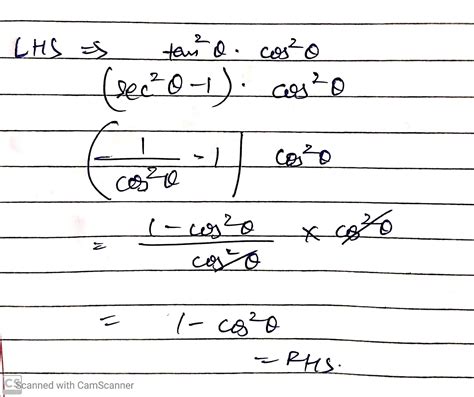 LHS ⇒ tan²θ · cos²θ
(sec²θ -1) · cos²θ
(1/cos²θ - 1) cos²θ
= (1 - cos²θ)/cos²θ × cos²θ
= 1 - cos²θ
= RHS.
CS Scanned with CamScanner